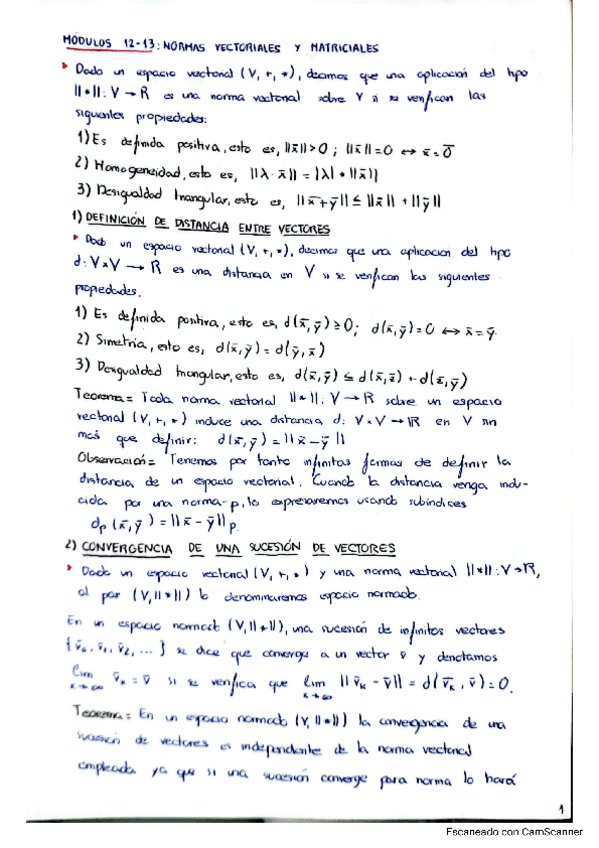 MÓDULOS 12-13: NORMAS VECTORIALES Y MATRICIALES
Dado un espacio vectorial (V, +, *), decimos que una aplicación del tipo
||*||: V → R es una norma vectorial sobre V si se verifican las
siguientes propiedades:
1) Es definida positiva, esto es, ||x̄||>0 ; ||x̄||=0 ↔ x̄=0̄
2) Homogeneidad, esto es, ||λ·x̄|| = |λ| * ||x̄||
3) Desigualdad triangular, esto es, ||x̄+ȳ|| ≤ ||x̄|| + ||ȳ||
1) DEFINICIÓN DE DISTANCIA ENTRE VECTORES
Dado un espacio vectorial (V, +, *), decimos que una aplicación del tipo
d: V×V → R es una distancia en V si se verifican las siguientes
propiedades.
1) Es definida positiva, esto es, d(x̄,ȳ)≥0; d(x̄,ȳ)=0 ↔ x̄=ȳ.
2) Simetría, esto es, d(x̄,ȳ)=d(ȳ,x̄)
3) Desigualdad triangular, esto es, d(x̄,ȳ) ≤ d(x̄,z̄) + d(z̄,ȳ)
Teorema= Toda norma vectorial ||*||: V → R sobre un espacio
vectorial (V, +, *) induce una distancia d: V×V → R en V sin
más que definir: d(x̄,ȳ)=||x̄-ȳ||
Observación= Tenemos por tanto infinitas formas de definir la
distancia de un espacio vectorial. Cuando la distancia venga indu-
cida por una norma-p, lo expresaremos usando subíndices
dp(x̄,ȳ)=||x̄-ȳ||p
2) CONVERGENCIA DE UNA SUCESIÓN DE VECTORES
Dado un espacio vectorial (V, +, *) y una norma vectorial ||*||: V→R,
al par (V, ||*||) lo denominaremos espacio normado.
En un espacio normado (V, ||*||), una sucesión de infinitos vectores
{v̄₀, v̄₁, v̄₂, ...} se dice que converge a un vector v̄ y denotamos
lim k→∞ v̄k = v̄ si se verifica que lim k→∞ ||v̄k - v̄|| = d(v̄k, v̄)=0.
Teorema= En un espacio normado (V, ||*||) la convergencia de una
sucesión de vectores es independiente de la norma vectorial
empleada ya que si una sucesión converge para norma lo hará
1
Escaneado con CamScanner